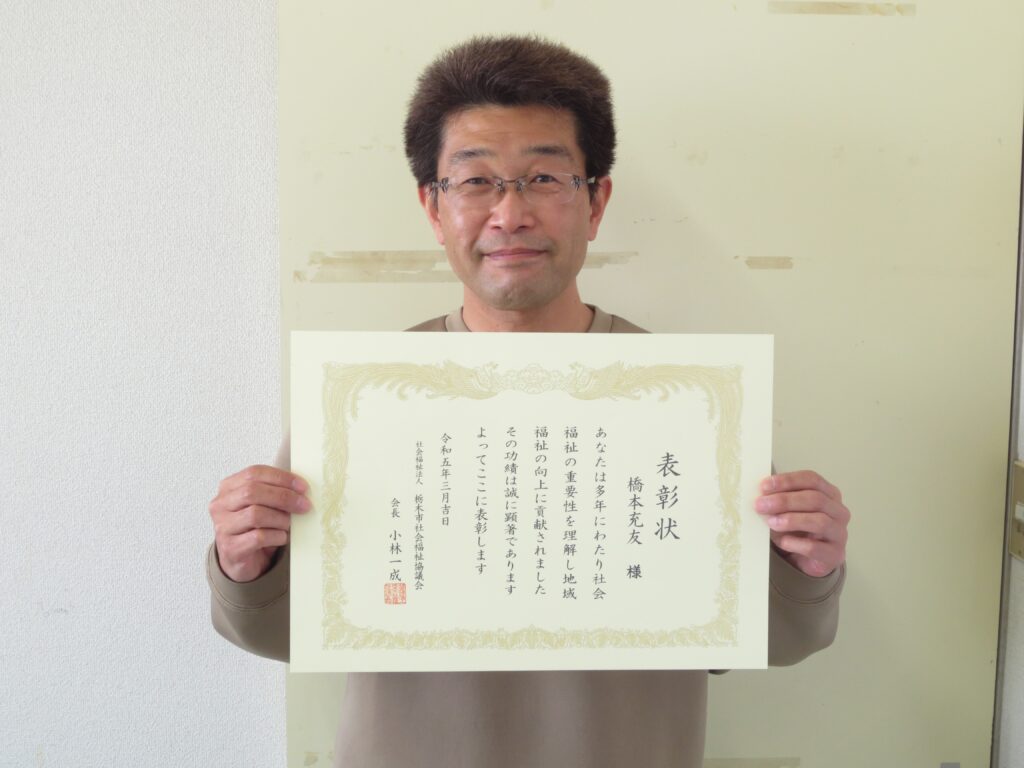 表彰状
橋本充友　様
あなたは多年にわたり社会
福祉の重要性を理解し地域
福祉の向上に貢献されました
その功績は誠に顕著であります
よってここに表彰します
令和五年三月吉日
社会福祉法人　栃木市社会福祉協議会
会長　小林一成